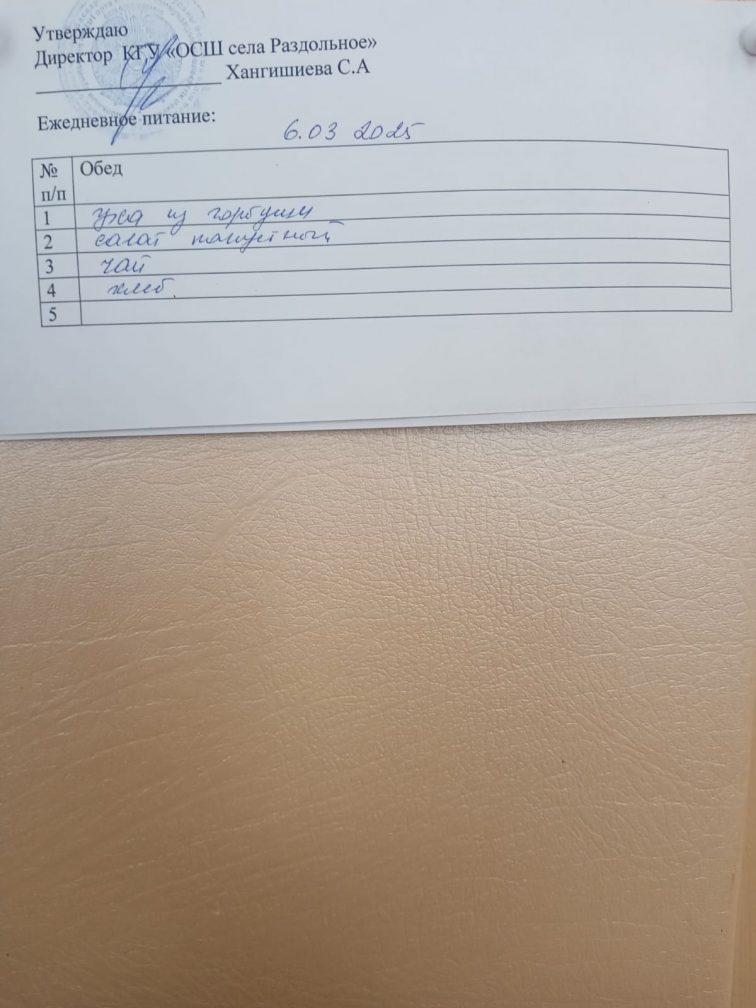 Утверждаю
Директор КГУ «ОСШ села Раздольное»
Хангишиева С.А
Ежедневное питание:
6.03 2025
№ п/п Обед
1 уха из горбуши
2 салат капустный
3 чай
4 хлеб
5